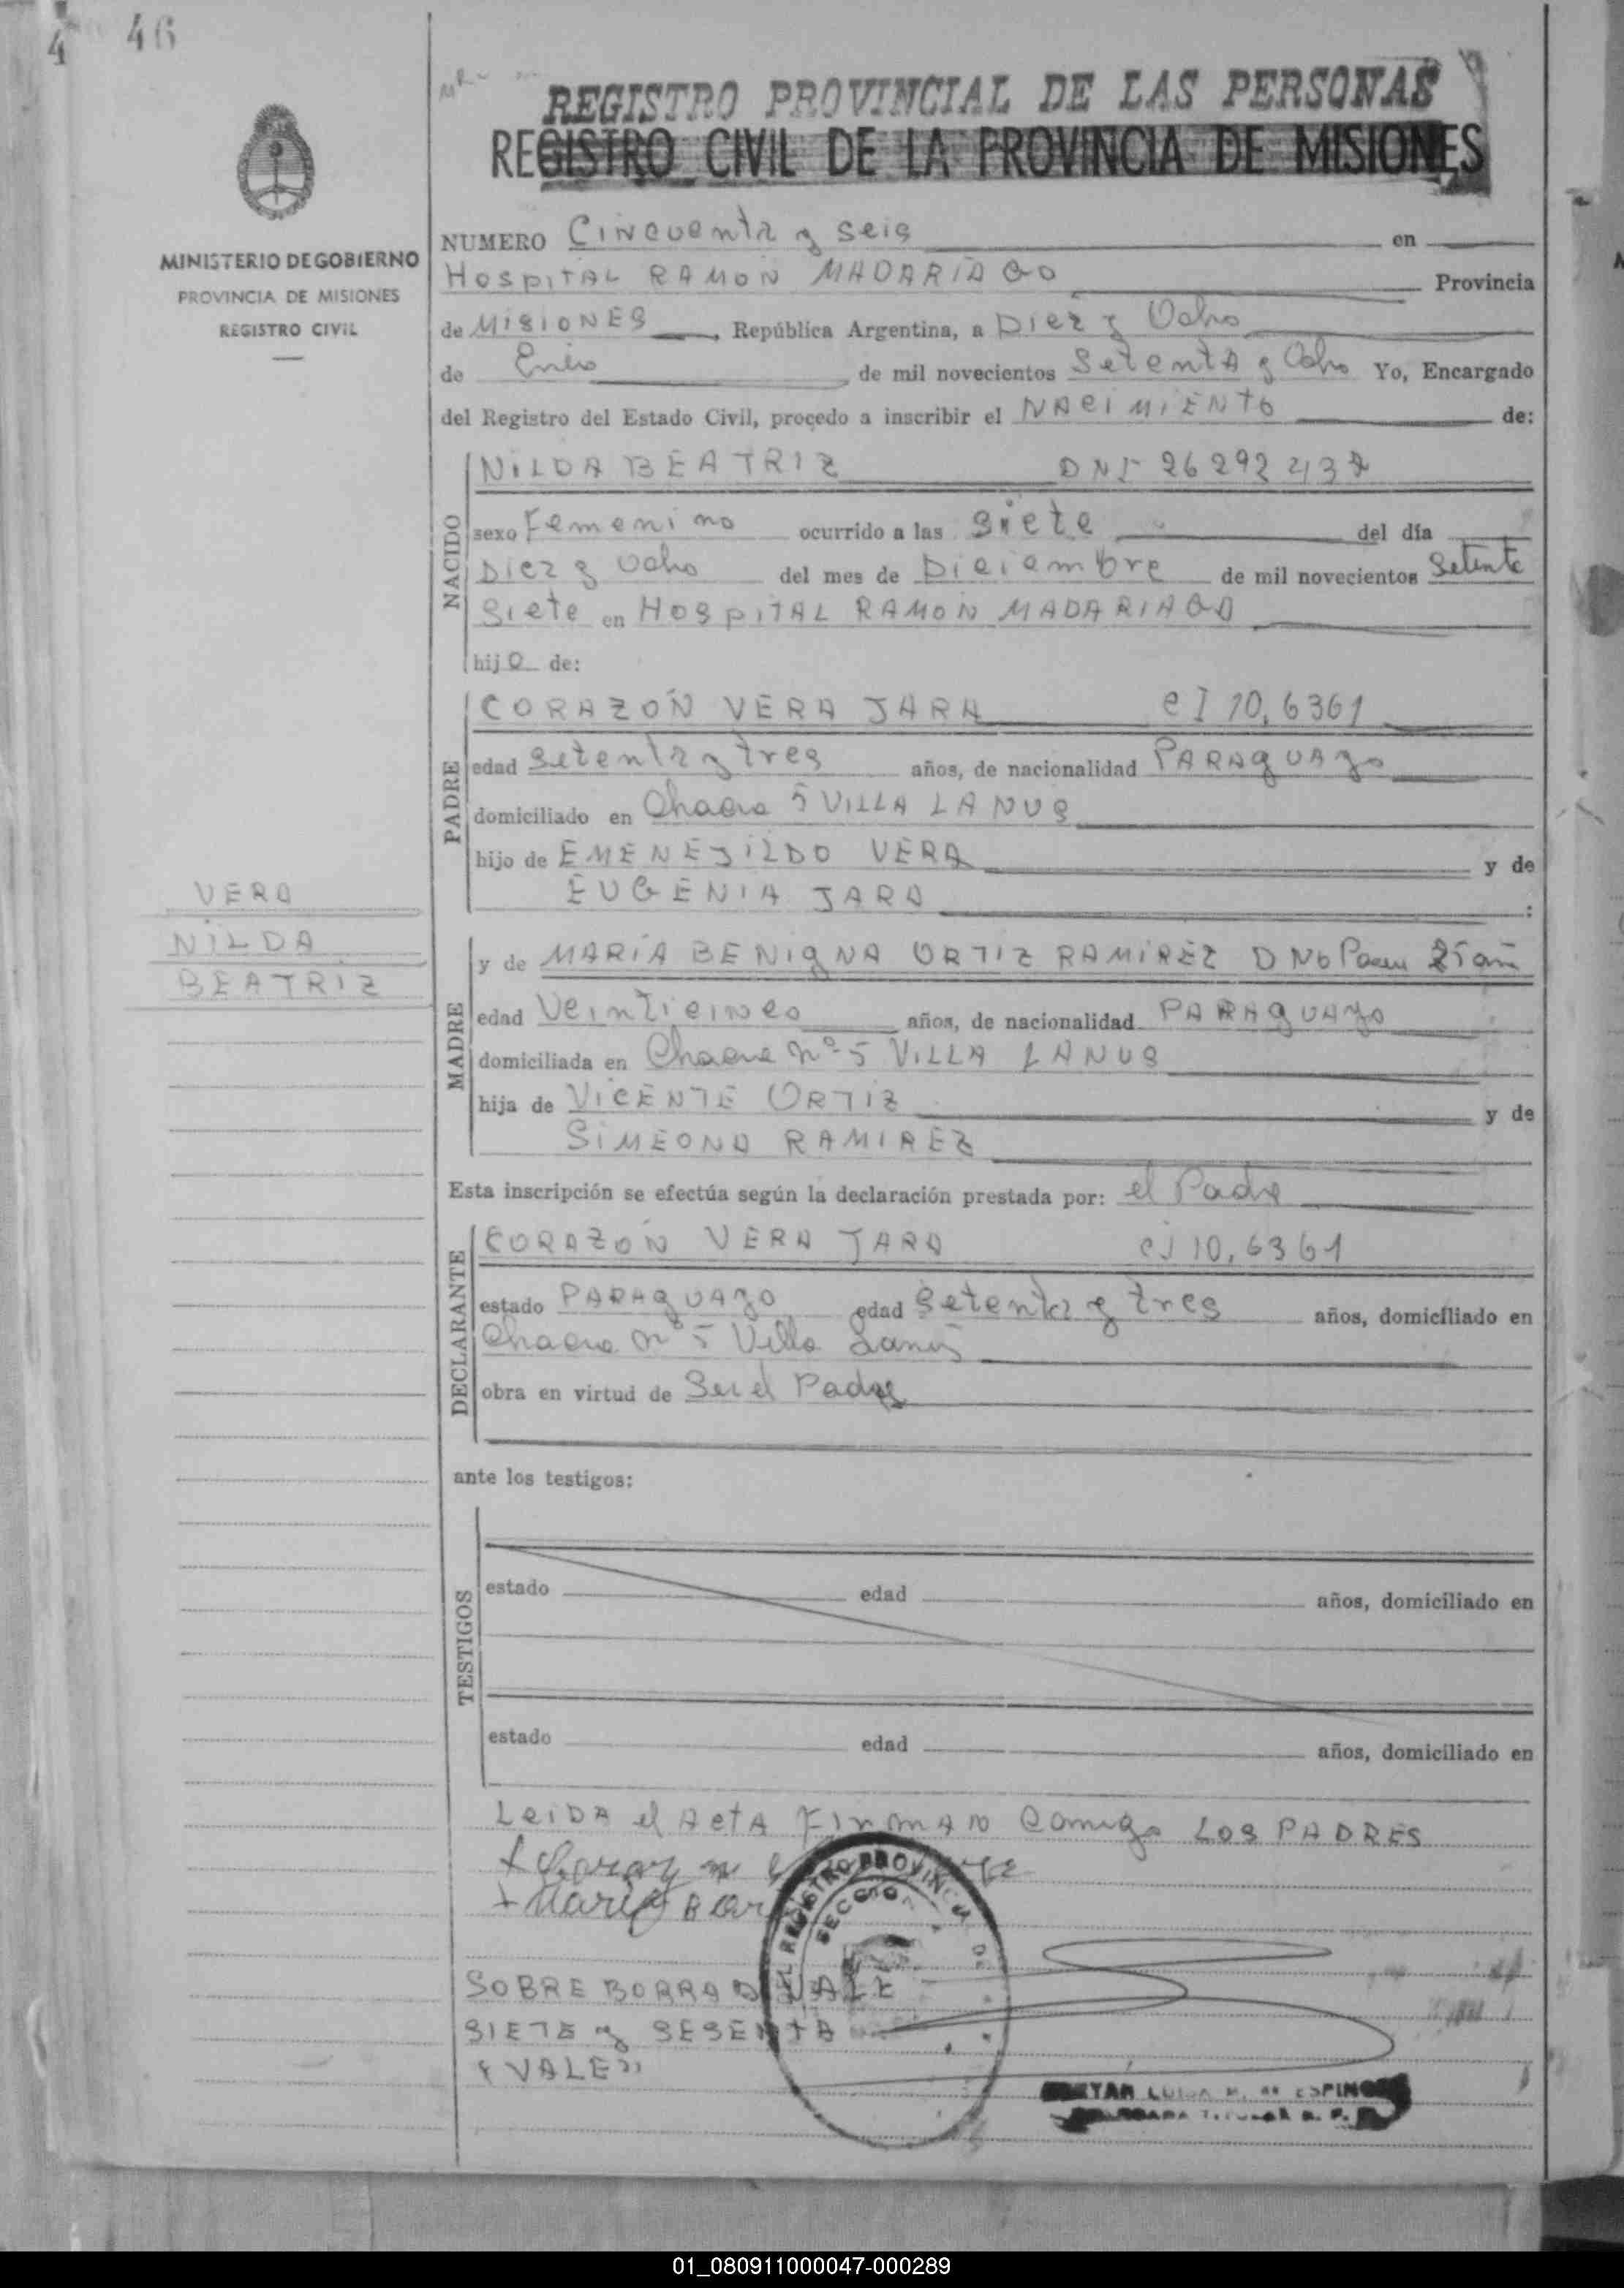 46
4
REGISTRO PROVINCIAL DE LAS PERSONAS
REGISTRO CIVIL DE LA PROVINCIA DE MISIONES
MINISTERIO DE GOBIERNO
PROVINCIA DE MISIONES
REGISTRO CIVIL
NUMERO Cincuenta y seis en
HOSPITAL RAMON MADARIAGA Provincia
de MISIONES, República Argentina, a Diez y Ocho
de Enero de mil novecientos Setenta y Ocho Yo, Encargado
del Registro del Estado Civil, procedo a inscribir el NACIMIENTO de:
NACIDO
NILDA BEATRIZ DNI 26292437
sexo Femenino ocurrido a las Siete del día
Diez y Ocho del mes de Diciembre de mil novecientos Setenta
Siete en HOSPITAL RAMON MADARIAGA
hija de:
PADRE
CORAZÓN VERA JARA CI 10,6361
edad Setenta y tres años, de nacionalidad PARAGUAYO
domiciliado en Chacra 5 VILLA LANUS
hijo de EMENEJILDO VERA y de
EUGENIA JARA :
VERA
NILDA
BEATRIZ
MADRE
y de MARÍA BENIGNA ORTIZ RAMIREZ
edad Veinticinco años, de nacionalidad PARAGUAYA
domiciliada en Chacra Nº 5 VILLA LANUS
hija de VICENTE ORTIZ y de
SIMEONA RAMIREZ
Esta inscripción se efectúa según la declaración prestada por: el Padre
DECLARANTE
CORAZÓN VERA JARA CI 10,6361
estado PARAGUAYO edad Setenta y tres años, domiciliado en
Chacra Nº 5 Villa Lanús
obra en virtud de Ser el Padre
ante los testigos:
TESTIGOS
estado edad años, domiciliado en
estado edad años, domiciliado en
LEIDA el ACTA FIRMAN Conmigo LOS PADRES
María
REGISTRO PROVINCIAL
SECCION
SOBRE BORRADO VALE
SIETE y SESENTA
"VALE"
LUISA ESPINO
01_080911000047-000289